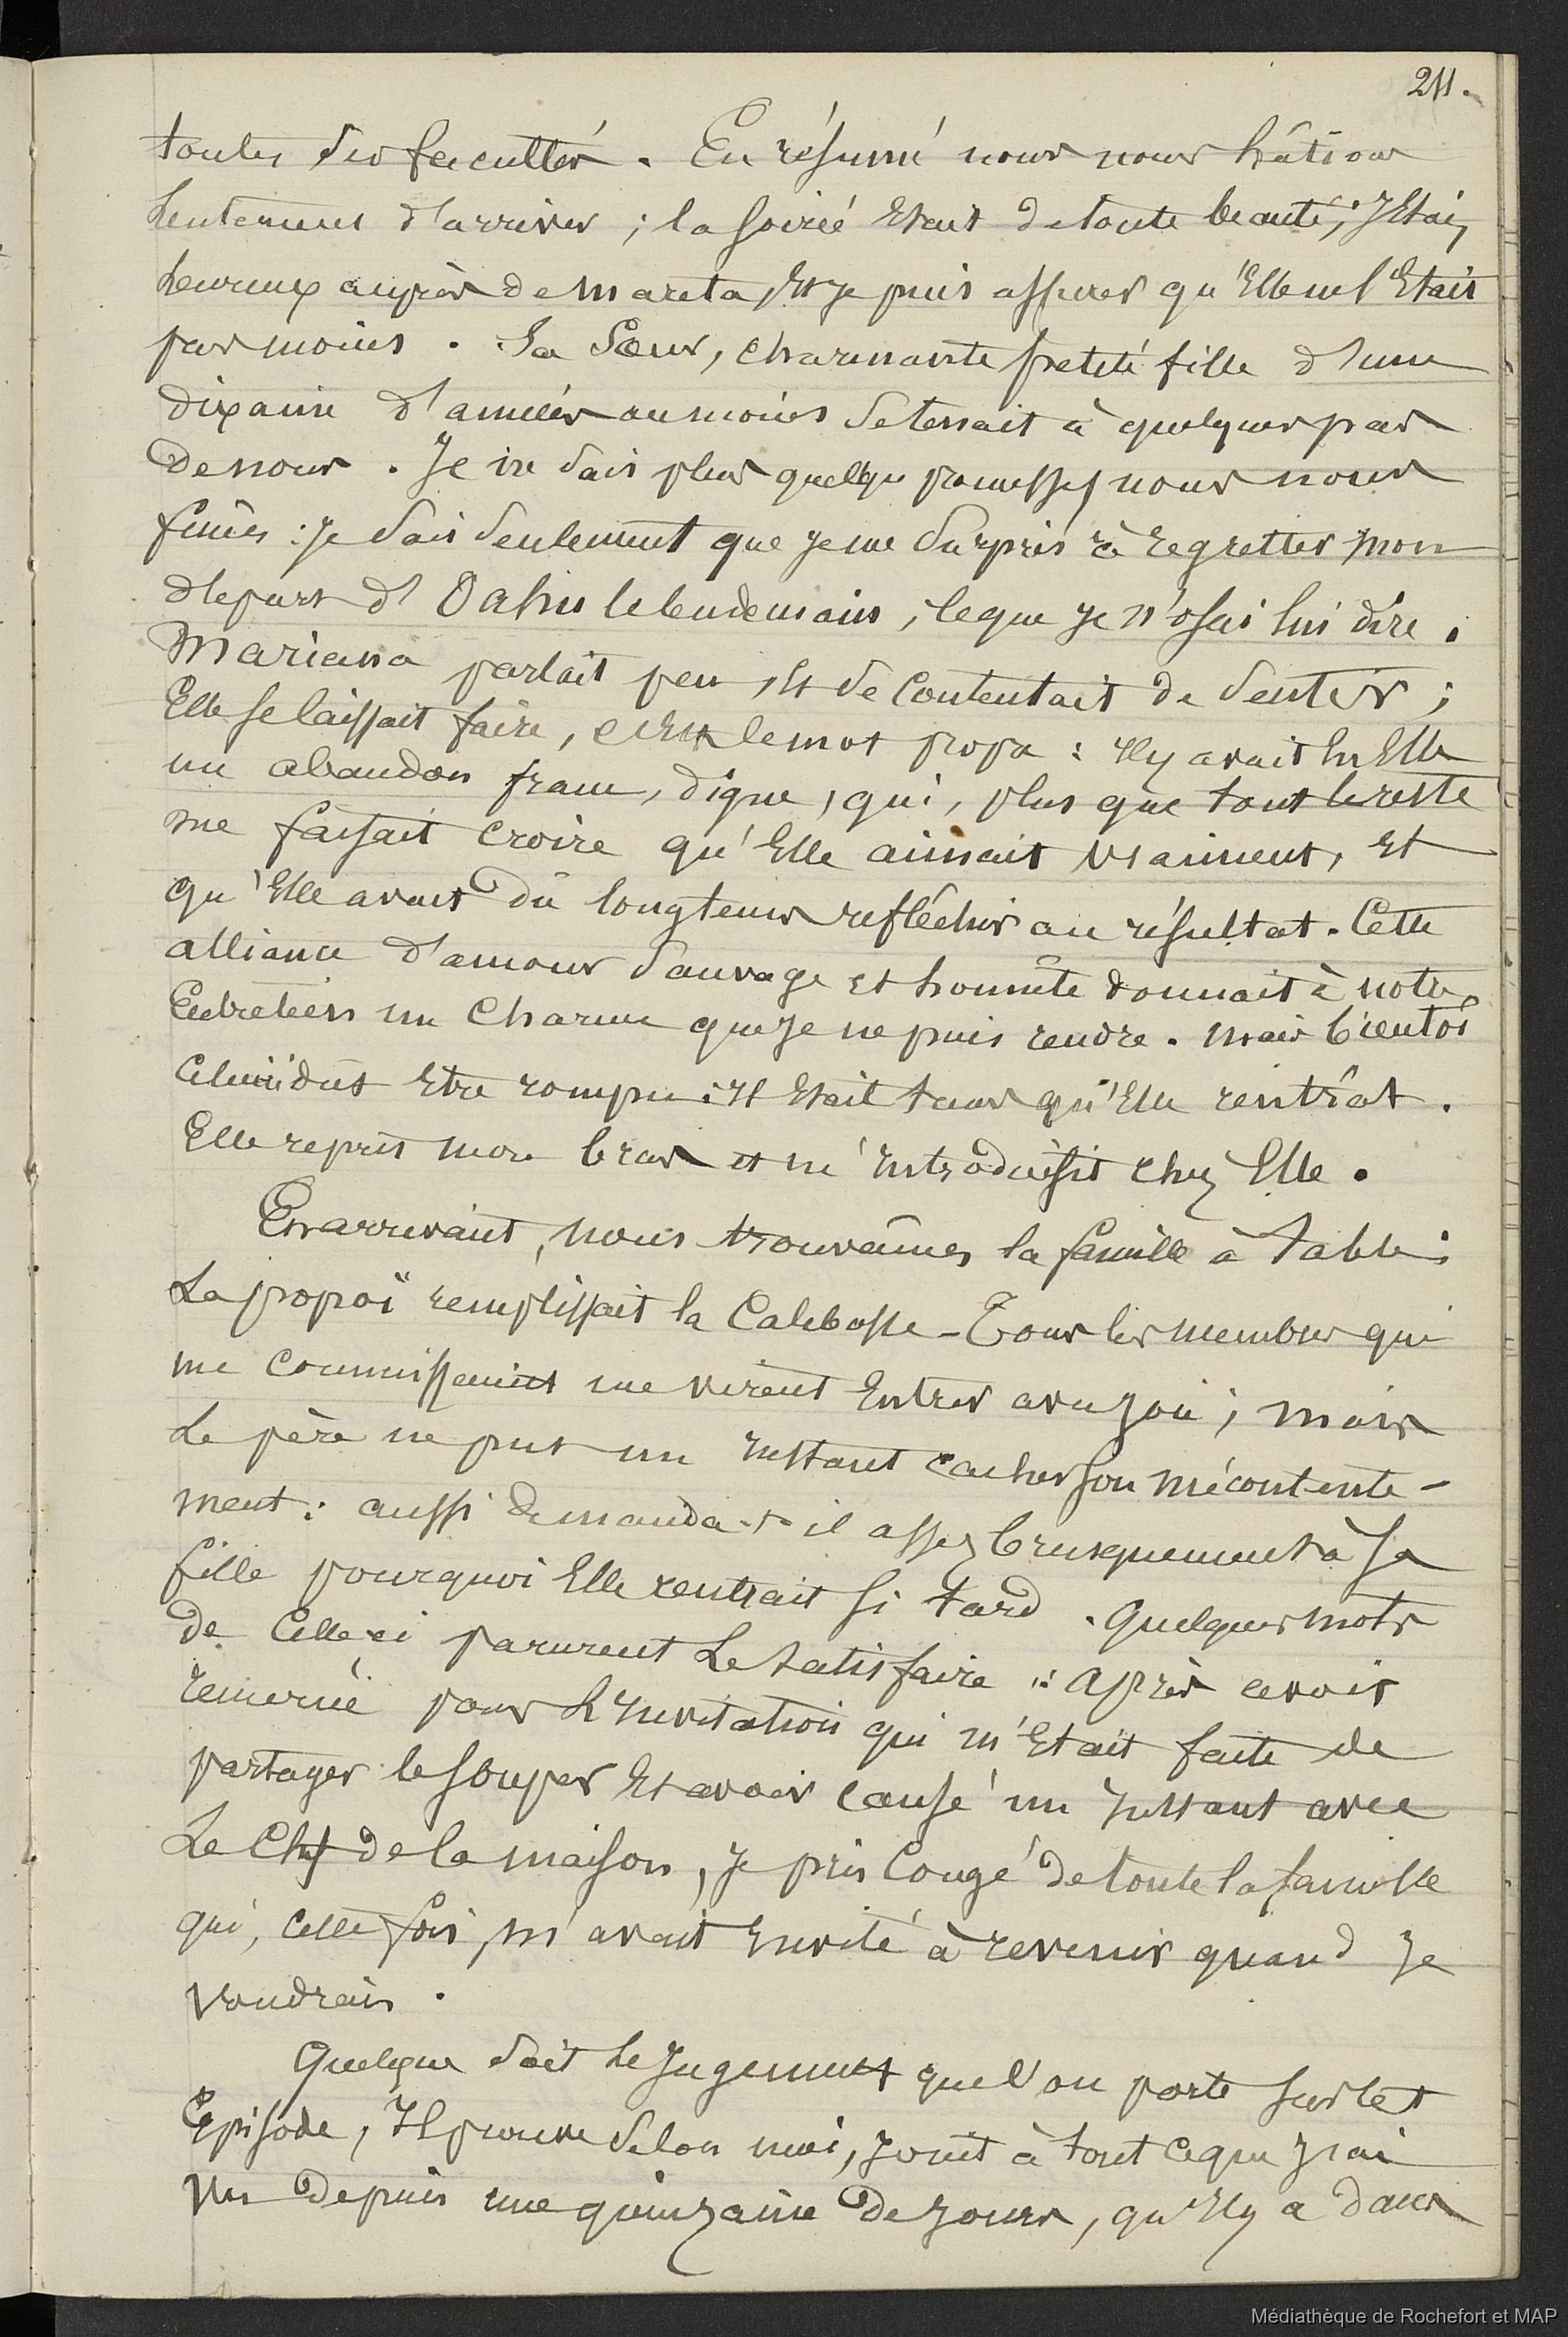 211.
toutes ses facultés. En résumé nous nous hâtions
lentement d'arriver ; la soirée était de toute beauté ; J'étais
heureux auprès de Mareta, Et je puis assurer qu'Elle ne l'Etait
pas moins. Sa Sœur, charmante petite fille d'une
dixaine d'années au moins se tenait à quelques pas
de nous. Je ne sais plus quelles promesses nous nous
fîmes : je sais seulement que je me surpris à regretter mon
départ d'Oahu le lendemain, ce que je n'osai lui dire.
Mariana parlait peu, Et se contentait de sentir ;
Elle se laissait faire, c'Est le mot propre : Il y avait En Elle
un abandon franc, digne, qui, plus que tout le reste
me faisait croire qu'Elle aimait vraiment, Et
qu'Elle avait dû longtems refléchir au résultat. Cette
alliance d'amour sauvage et honnête donnait à notre
Entretien un Charme que je ne puis rendre. Mais bientôt
celui-ci dût Etre rompu : Il Etait tems qu'Elle rentrât.
Elle reprit mon bras et m'Introduisit chez Elle.
En arrivant, nous trouvâmes la famille à table ;
La popoï remplissait la Calebasse - Tous les membres qui
me connaissaient me virent Entrer avec joie ; mais
Le père ne put un Instant cacher son mécontente-
ment : aussi demanda-t-il assez brusquement à sa
fille pourquoi Elle rentrait si tard. Quelques mots
de Celle-ci parurent Le satisfaire : après avoir
remercié pour L'Invitation qui m'Etait faite de
partager le souper Et avoir causé un Instant avec
Le Chef de la maison, Je pris Congé de toute la famille
qui, cette fois, m'avait Invité à revenir quand Je
voudrais.
Quelque soit Le Jugement que l'on porte sur cet
Episode, Il prouve selon moi, Joint à tout ce que J'ai
vu depuis une quinzaine de Jours, qu'Il y a dans
Médiathèque de Rochefort et MAP